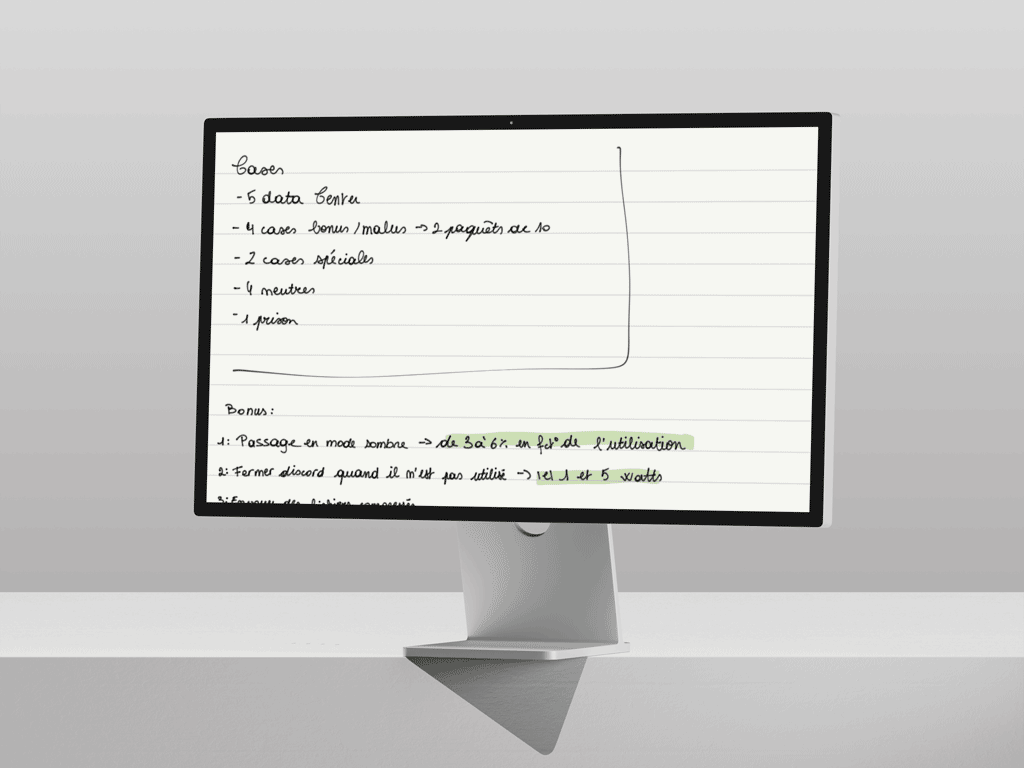 Cases
- 5 data Center
- 4 cases bonus/malus → 2 paquêts de 10
- 2 cases spéciales
- 4 neutres
- 1 prison
Bonus:
1: Passage en mode sombre → de 3 à 6% en fct° de l'utilisation
2: Fermer discord quand il n'est pas utilisé → 1 et 5 watts
3: Envoyer des fichiers compressés